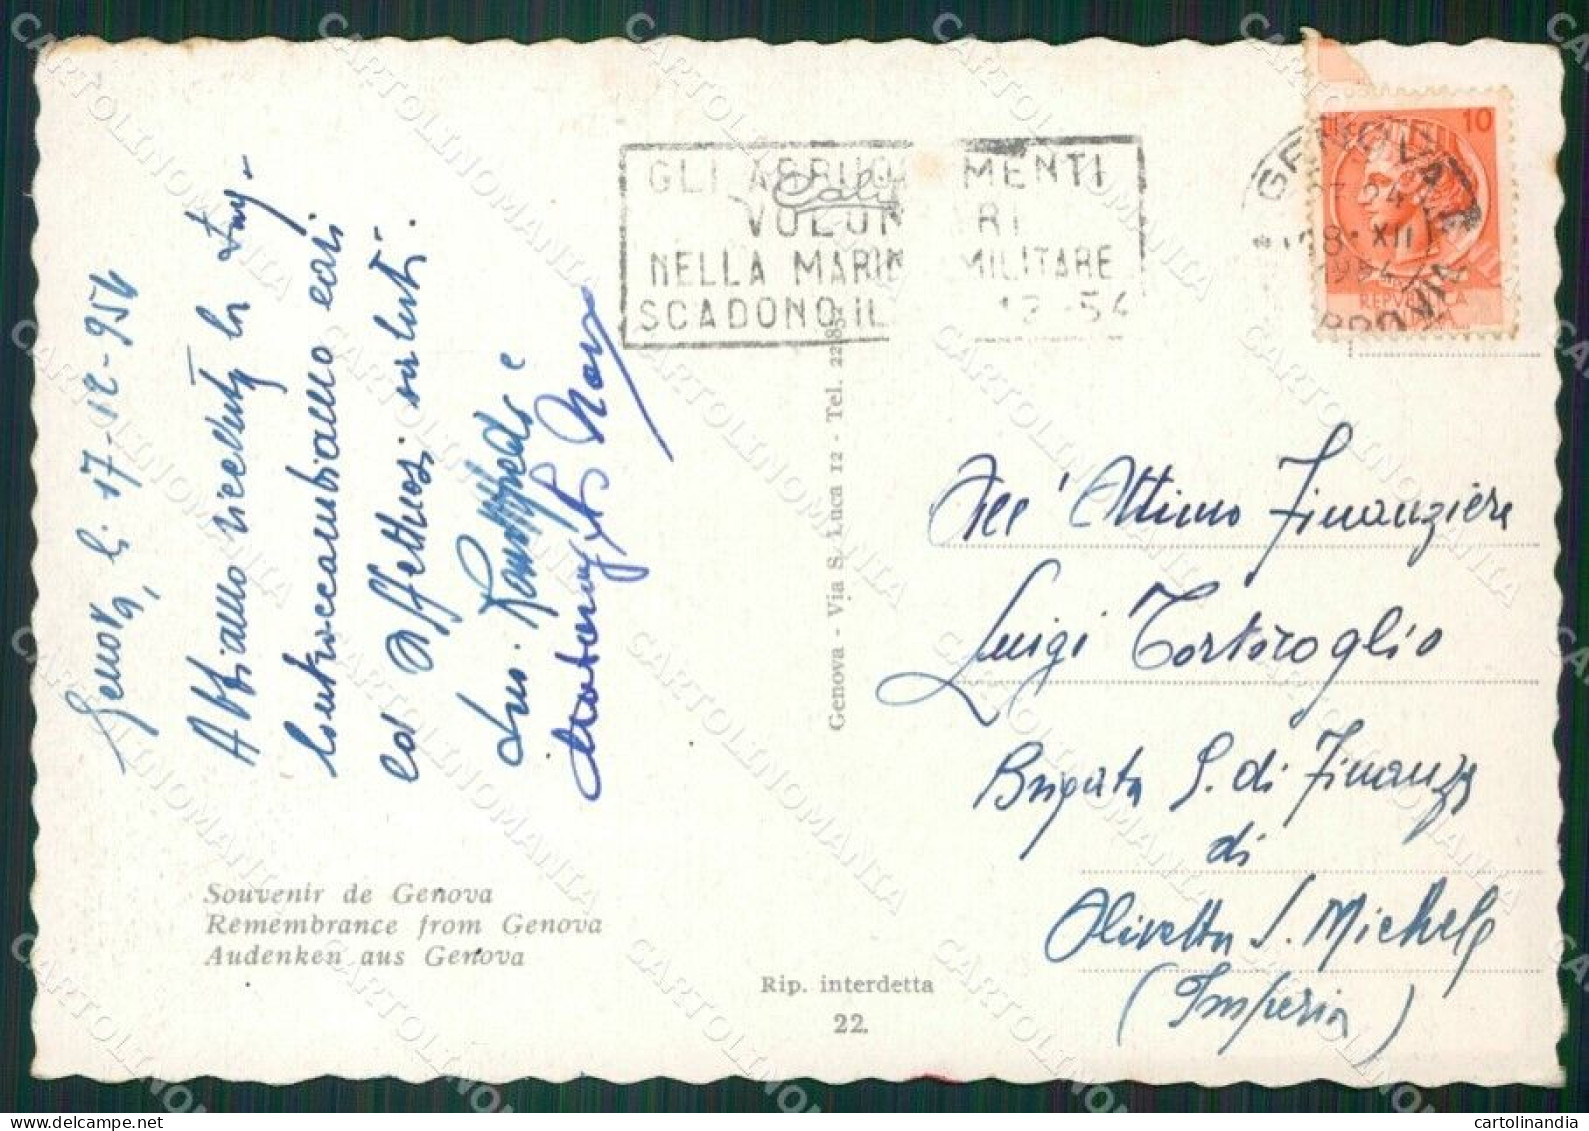 Genova, li 17-12-954
Abbiamo ricevuta la tua -
Contraccambiamo cari
ed affettuosi saluti.
GLI ARRUOLAMENTI
VOLONTARI
NELLA MARINA MILITARE
SCADONO IL 12-54
GENOVA
18·XII
1954
FERROVIA
10
REPVBBLICA
Genova - Via S. Luca 12 - Tel. 22.857
All'Attimo Finanziere
Luigi Tortiroglio
Brigata G. di Finanza
di
Olivetta S. Michele
(Imperia)
Souvenir de Genova
Remembrance from Genova
Audenken aus Genova
Rip. interdetta
22.
CARTOLINOMANIA
cartolinandia